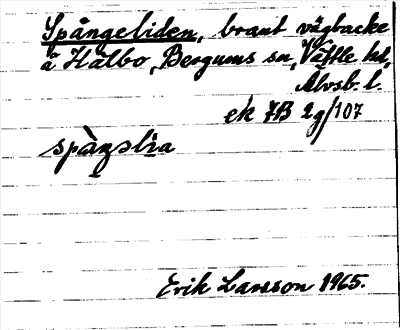 Spångeliden, brant vägbacke
å Hälbo, Bergums sn, Vättle hd,
Älvsb. l.
ek 7B 2g/107
spàŋslia
Erik Larsson 1965.